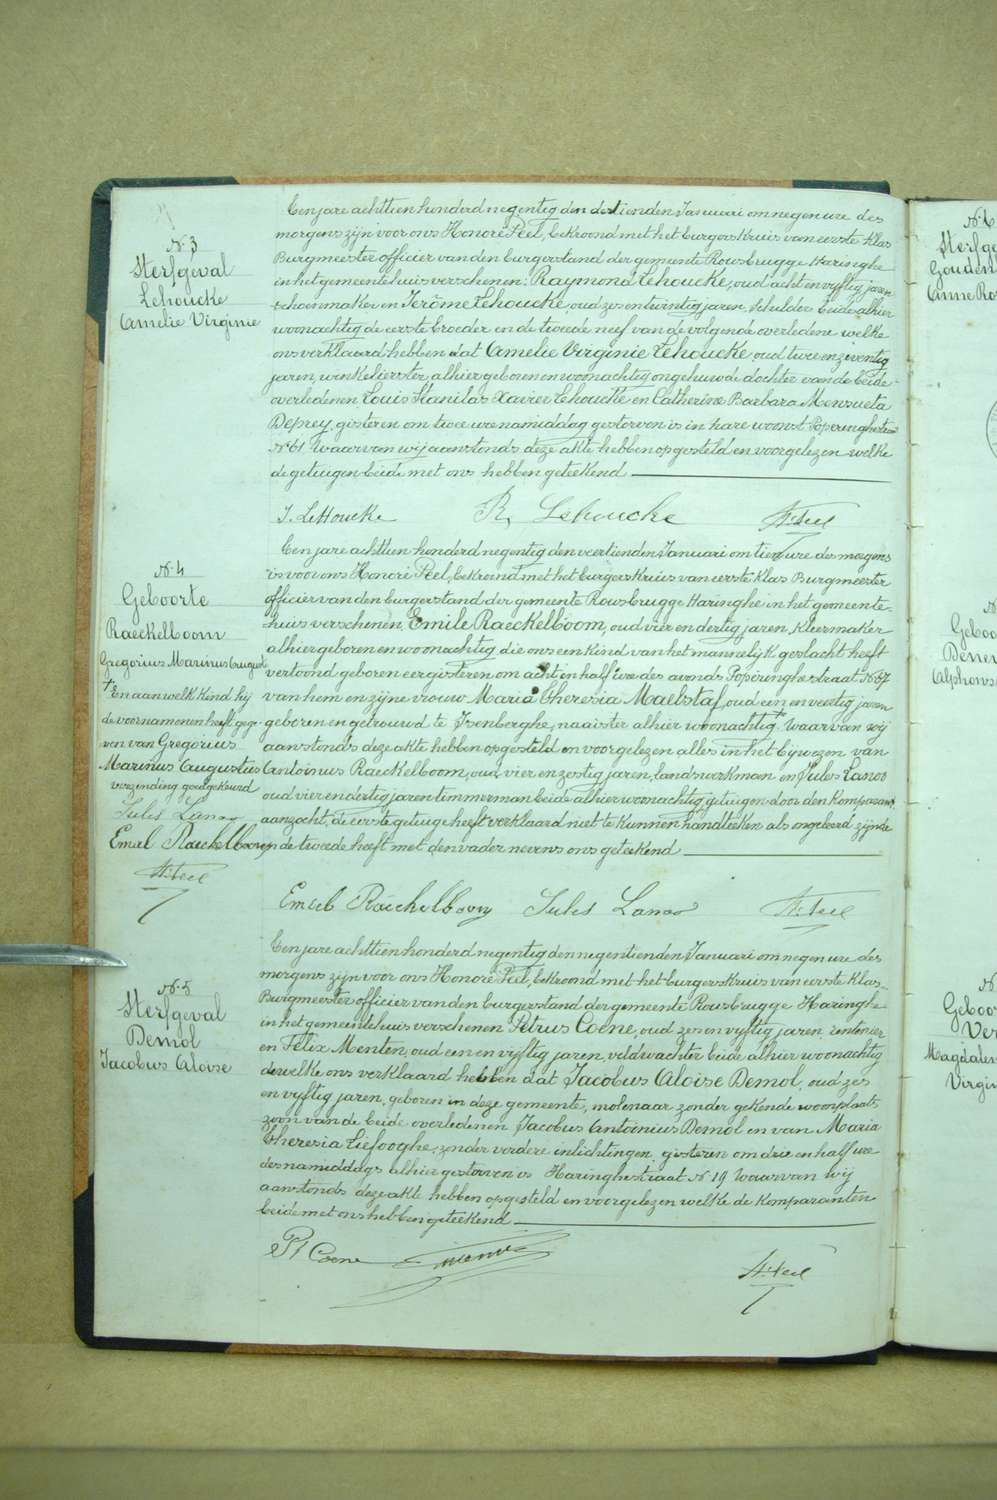 N. 3
Sterfgeval
Lehoucke
Amelie Virginie
Een jare achttien honderd negentig den destienden Januari om negen ure des
morgens zijn voor ons Honoré Peel, bekroond met het burgerskruis van eerste klas
Burgmeester officier van den burgerstand der gemeente Rousbrugge Haringhe
in het gemeentehuis verschenen: Raymond Lehoucke, oud acht en vijftig jaren
schoenmaker en Jérôme Lehoucke, oud zes en twintig jaren, schilder beide alhier
woonachtig de eerste broeder en de tweede neef van de volgende overledene welke
ons verklaard hebben dat Amelie Virginie Lehoucke oud twee en zeventig
jaren, winkelierster, alhier geboren en woonachtig ongehuwde dochter van de beide
overledenen Louis Stanilas Xavier Lehoucke en Catherine Barbara Mensueta
Deprey, gisteren om twee ure namiddag gestorven is in hare woonst Poperinghestraat
No 61 Waarvan wij aanstonds deze akte hebben opgesteld en voorgelezen welke
de getuigen beide met ons hebben geteekend
J. Lehoucke R. Lehoucke H. Peel
N. 4
Geboorte
Raeckelboom
Gregorius Marinus August
† En aan welk kind hij
de voornamen heeft geg-
ven van Gregorius
Marinus Augustus
verzinding goedgekeurd
Jules Lanoo
Emiel Raeckelboom
H. Peel
Een jare achttien honderd negentig den veertienden Januari om tien ure des morgens
is voor ons Honoré Peel, bekroond met het burgerskruis van eerste klas Burgmeester
officier van den burgerstand der gemeente Rousbrugge Haringhe in het gemeente-
huis verschenen, Emile Raeckelboom, oud vier en dertig jaren, kleermaker
alhier geboren en woonachtig die ons een kind van het mannelijk geslacht heeft
vertoond geboren eergisteren om acht en half ure des avonds Poperinghestraat No 67
van hem en zijne vrouw Maria Theresia Maelstaf, oud een en veertig jaren
geboren en getrouwd te Isenberghe, naaister alhier woonachtig † Waarvan wij
aanstonds deze akte hebben opgesteld en voorgelezen alles in het bijwezen van
Antoinus Raeckelboom, oud vier en zestig jaren, landswerkman en Jules Lanoo
oud vier en dertig jaren timmerman beide alhier woonachtig getuigen door den komparant
aanzocht, de eerste getuige heeft verklaard niet te kunnen handteeken als ongeleerd zijnde
en de tweede heeft met den vader nevens ons geteekend
Emiel Raeckelboom Jules Lanoo H. Peel
N. 5
Sterfgeval
Demol
Jacobus Aloise
Een jare achttien honderd negentig den negentienden Januari om negen ure des
morgens zijn voor ons Honoré Peel, bekroond met het burgerskruis van eerste klas
Burgmeester officier van den burgerstand der gemeente Rousbrugge Haringhe
in het gemeentehuis verschenen Petrus Coene, oud zes en vijftig jaren, rentenier
en Félix Menten, oud een en vijftig jaren, veldwachter beide alhier woonachtig
dewelke ons verklaard hebben dat Jacobus Aloise Demol, oud zes
en vijftig jaren, geboren in deze gemeente, molenaar zonder gekende woonplaats
zoon van de beide overledenen Jacobus Antoinius Demol en van Maria
Theresia Liefooghe, zonder verdere inlichtingen, gisteren om drie en half ure
des namiddags alhier gestorven is Haringhestraat No 19 Waarvan wij
aanstonds deze akte hebben opgesteld en voorgelezen welke de komparanten
beide met ons hebben geteekend
Pt Coene Menten H. Peel
N. 6
Sterfge
Gouden
Anne Ro
Geboo
Dene
Alphons
N.
Geboor
Ver
Magdale
Virgin